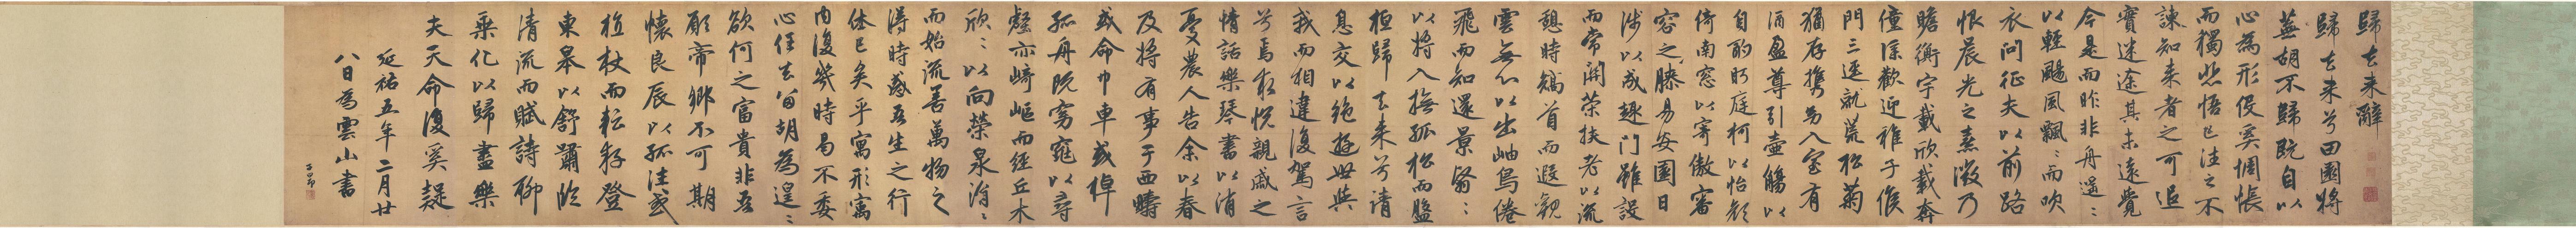 歸去来辭
歸去来兮田園將
蕪胡不歸既自以
心為形役奚惆悵
而獨悲悟已往之不
諫知来者之可追
實迷途其未遠覺
今是而昨非舟遥〻
以輕颺風飄〻而吹
衣問征夫以前路
恨晨光之熹微乃
瞻衡宇載欣載奔
僮僕歡迎稚子候
門三逕就荒松菊
猶存攜幼入室有
酒盈尊引壺觴以
自酌眄庭柯以怡顏
倚南窓以寄傲審
容之膝易安園日
涉以成趣门雖設
而常關策扶老以流
憩時矯首而遐觀
雲無心以出岫鳥倦
飛而知還景翳〻
以將入撫孤松而盤
桓歸去来兮請
息交以絶遊世與
我而相違復駕言
兮焉求悅親戚之
情話樂琴書以消
憂農人告余以春
及將有事于西疇
或命巾車或棹
孤舟既窈窕以尋
壑亦崎嶇而經丘木
欣〻以向榮泉涓〻
而始流善萬物之
得時感吾生之行
休已矣乎寓形寓
内復幾時曷不委
心任去留胡為遑〻
欲何之富貴非吾
願帝鄉不可期
懷良辰以孤往或
植杖而耘耔登
東皋以舒嘯臨
清流而賦詩聊
乘化以歸盡樂
夫天命復奚疑
延祐五年二月廿
八日為雲山書
子昂